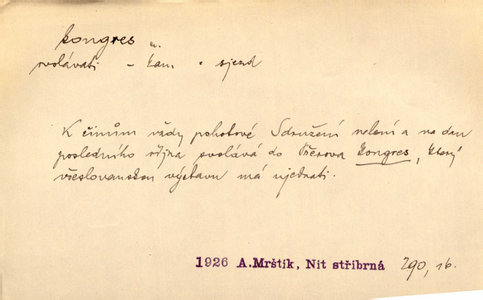 kongres m.
svolávati – kam • sjezd
K činům vždy pohotové Sdružení nelení a na den
posledního října svolává do Přerova kongres, který
všeslovanskou výstavu má ujednati.
1926 A. Mrštík, Nit stříbrná 290, 16.